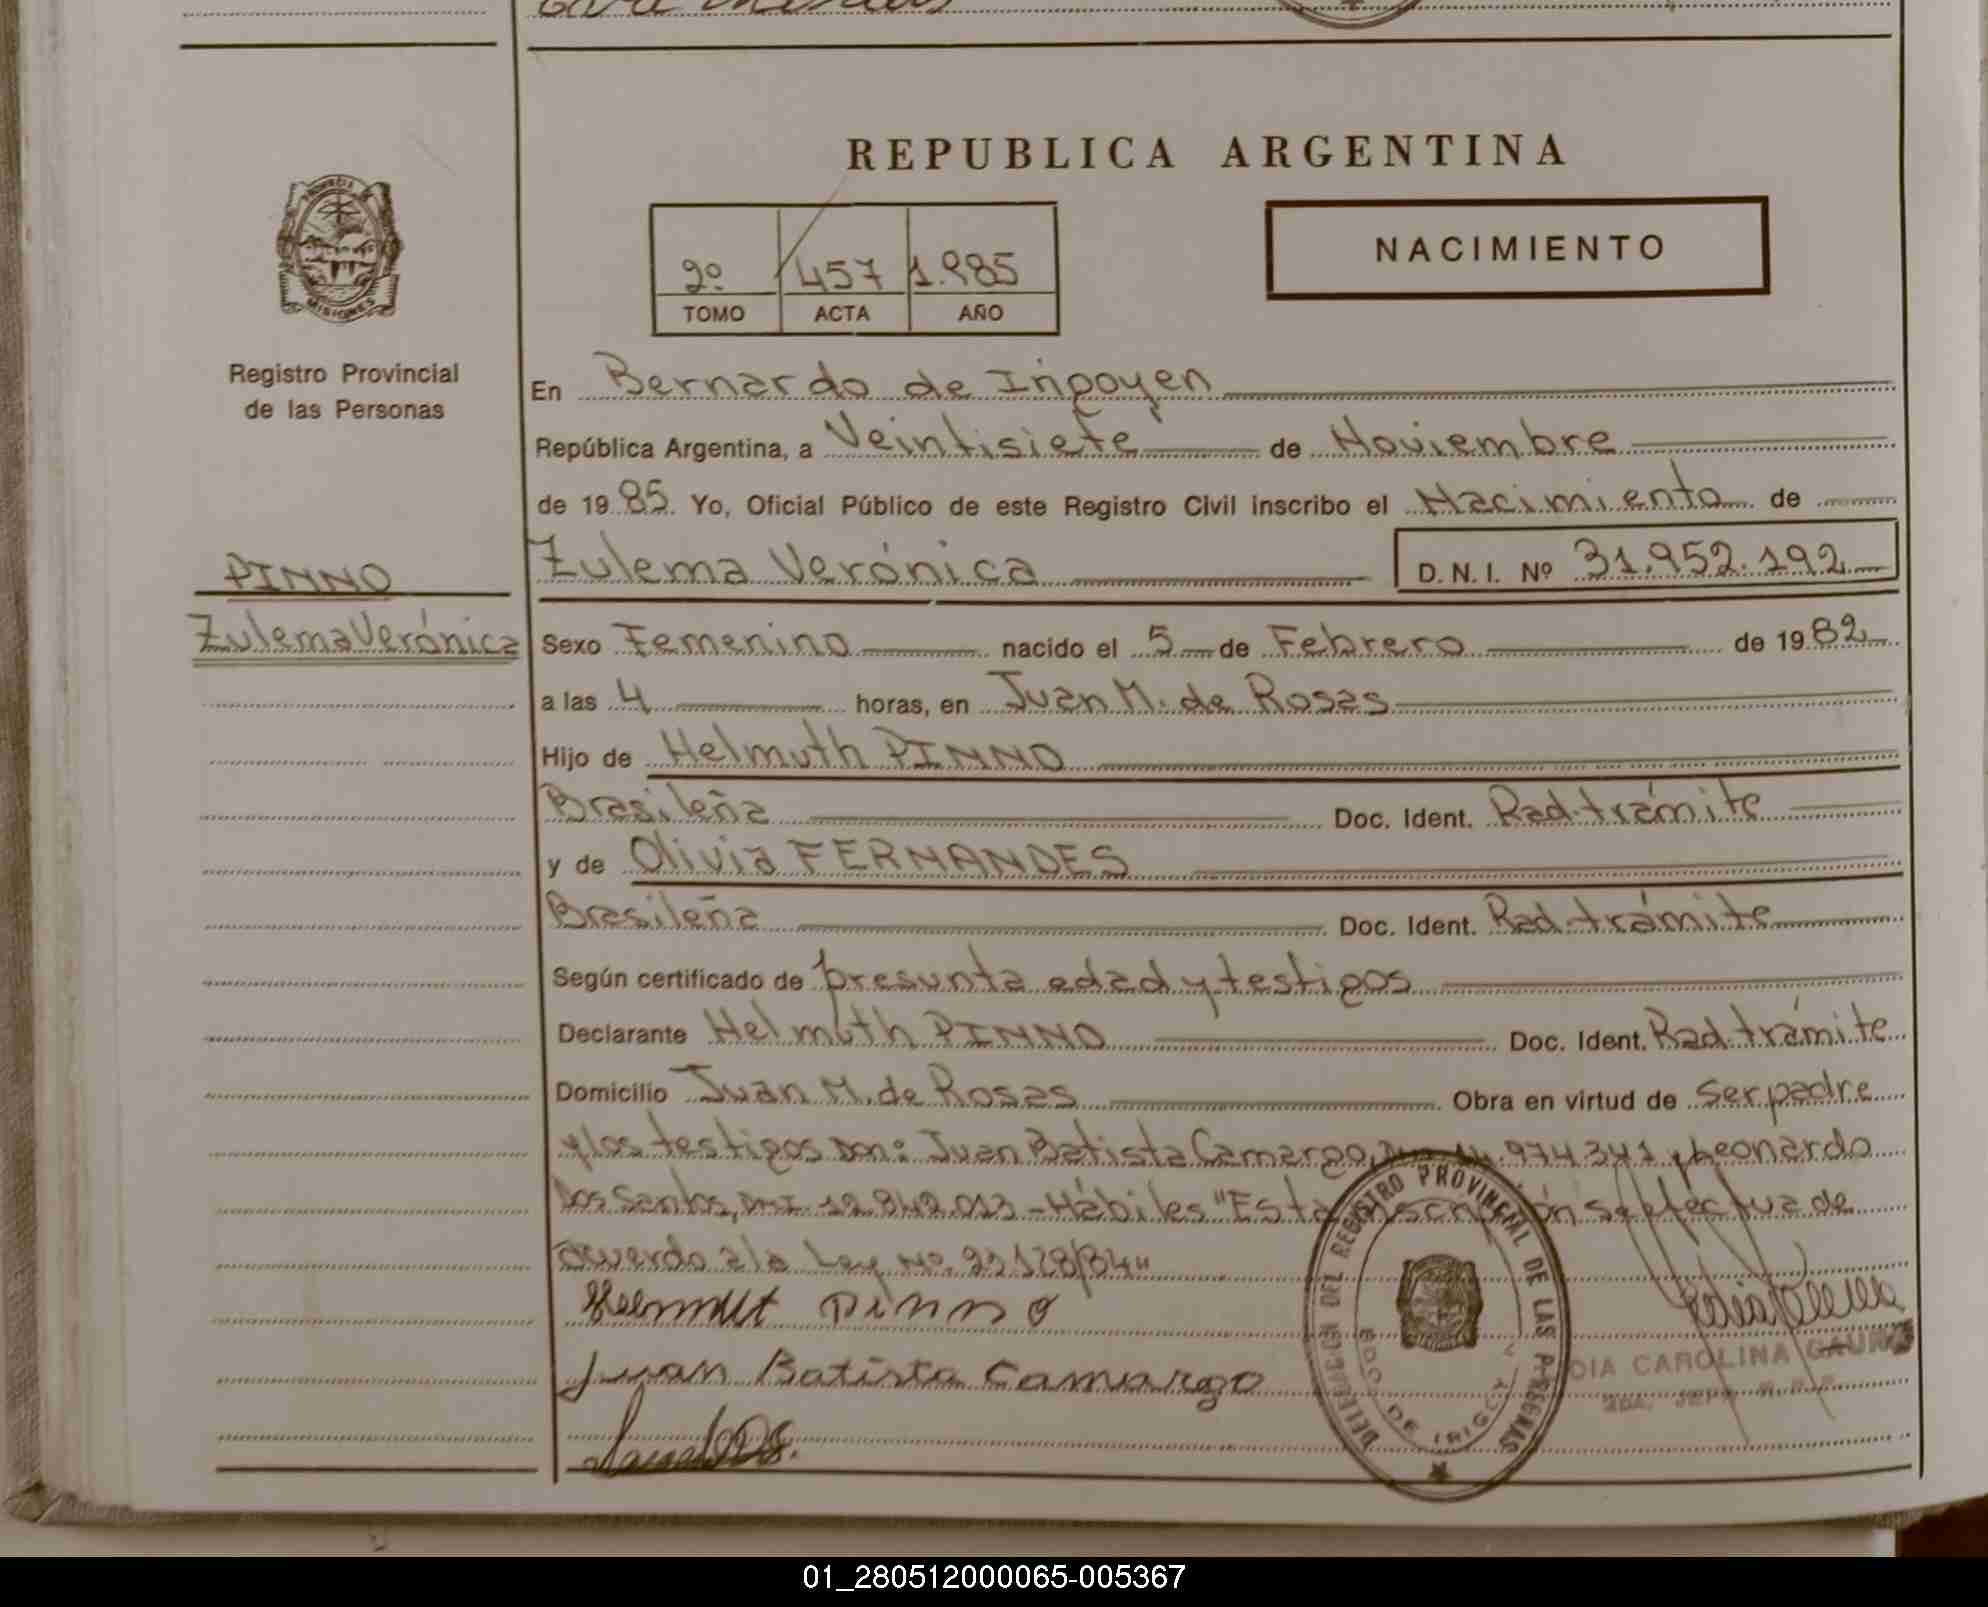 REPUBLICA ARGENTINA
PROVINCIA DE
MISIONES
2º 457 1.985
TOMO ACTA AÑO
NACIMIENTO
Registro Provincial
de las Personas
En Bernardo de Irigoyen
República Argentina, a Veintisiete de Noviembre
de 1985. Yo, Oficial Público de este Registro Civil inscribo el Nacimiento de
Zulema Verónica D. N. I. Nº 31.952.192
PINNO
Zulema Verónica
Sexo Femenino nacido el 5 de Febrero de 1982
a las 4 horas, en Juan M. de Rosas
Hijo de Helmuth PINNO
Brasileña Doc. Ident. Rad. trámite
y de Olivia FERNANDES
Brasileña Doc. Ident. Rad. trámite
Según certificado de presunta edad y testigos
Declarante Helmuth PINNO Doc. Ident. Rad. trámite
Domicilio Juan M. de Rosas Obra en virtud de ser padre
y los testigos son: Juan Batista Camargo, 14.974.341 y Leonardo
Dos Santos, DNI 12.842.013 - Hábiles "Esta inscripción se efectua de
acuerdo a la Ley Nº. 23.128/84"
Helmutt pinno
Juan Batista Camargo
DELEGACION DEL REGISTRO PROVINCIAL DE LAS PERSONAS
BDO. DE IRIGOYEN
DIA CAROLINA GAUNA
01_280512000065-005367